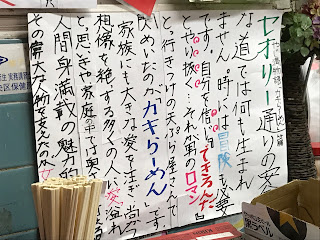 セオリー通りの
な道では何も生まれ
ません。時には冒険も必要
です。自分を信じ『できるんだ』
とやり抜く…それが男のロマン
と行きつけの天ぷら屋さんで
閃めいたのがカキらーめんです。
家族にも大きな愛を注ぎ尚つ
想像を絶する多くの人に愛溢れ
と思いきや家庭の中では奥
人間身満載の魅力的
その偉大な人物を支えたのが女